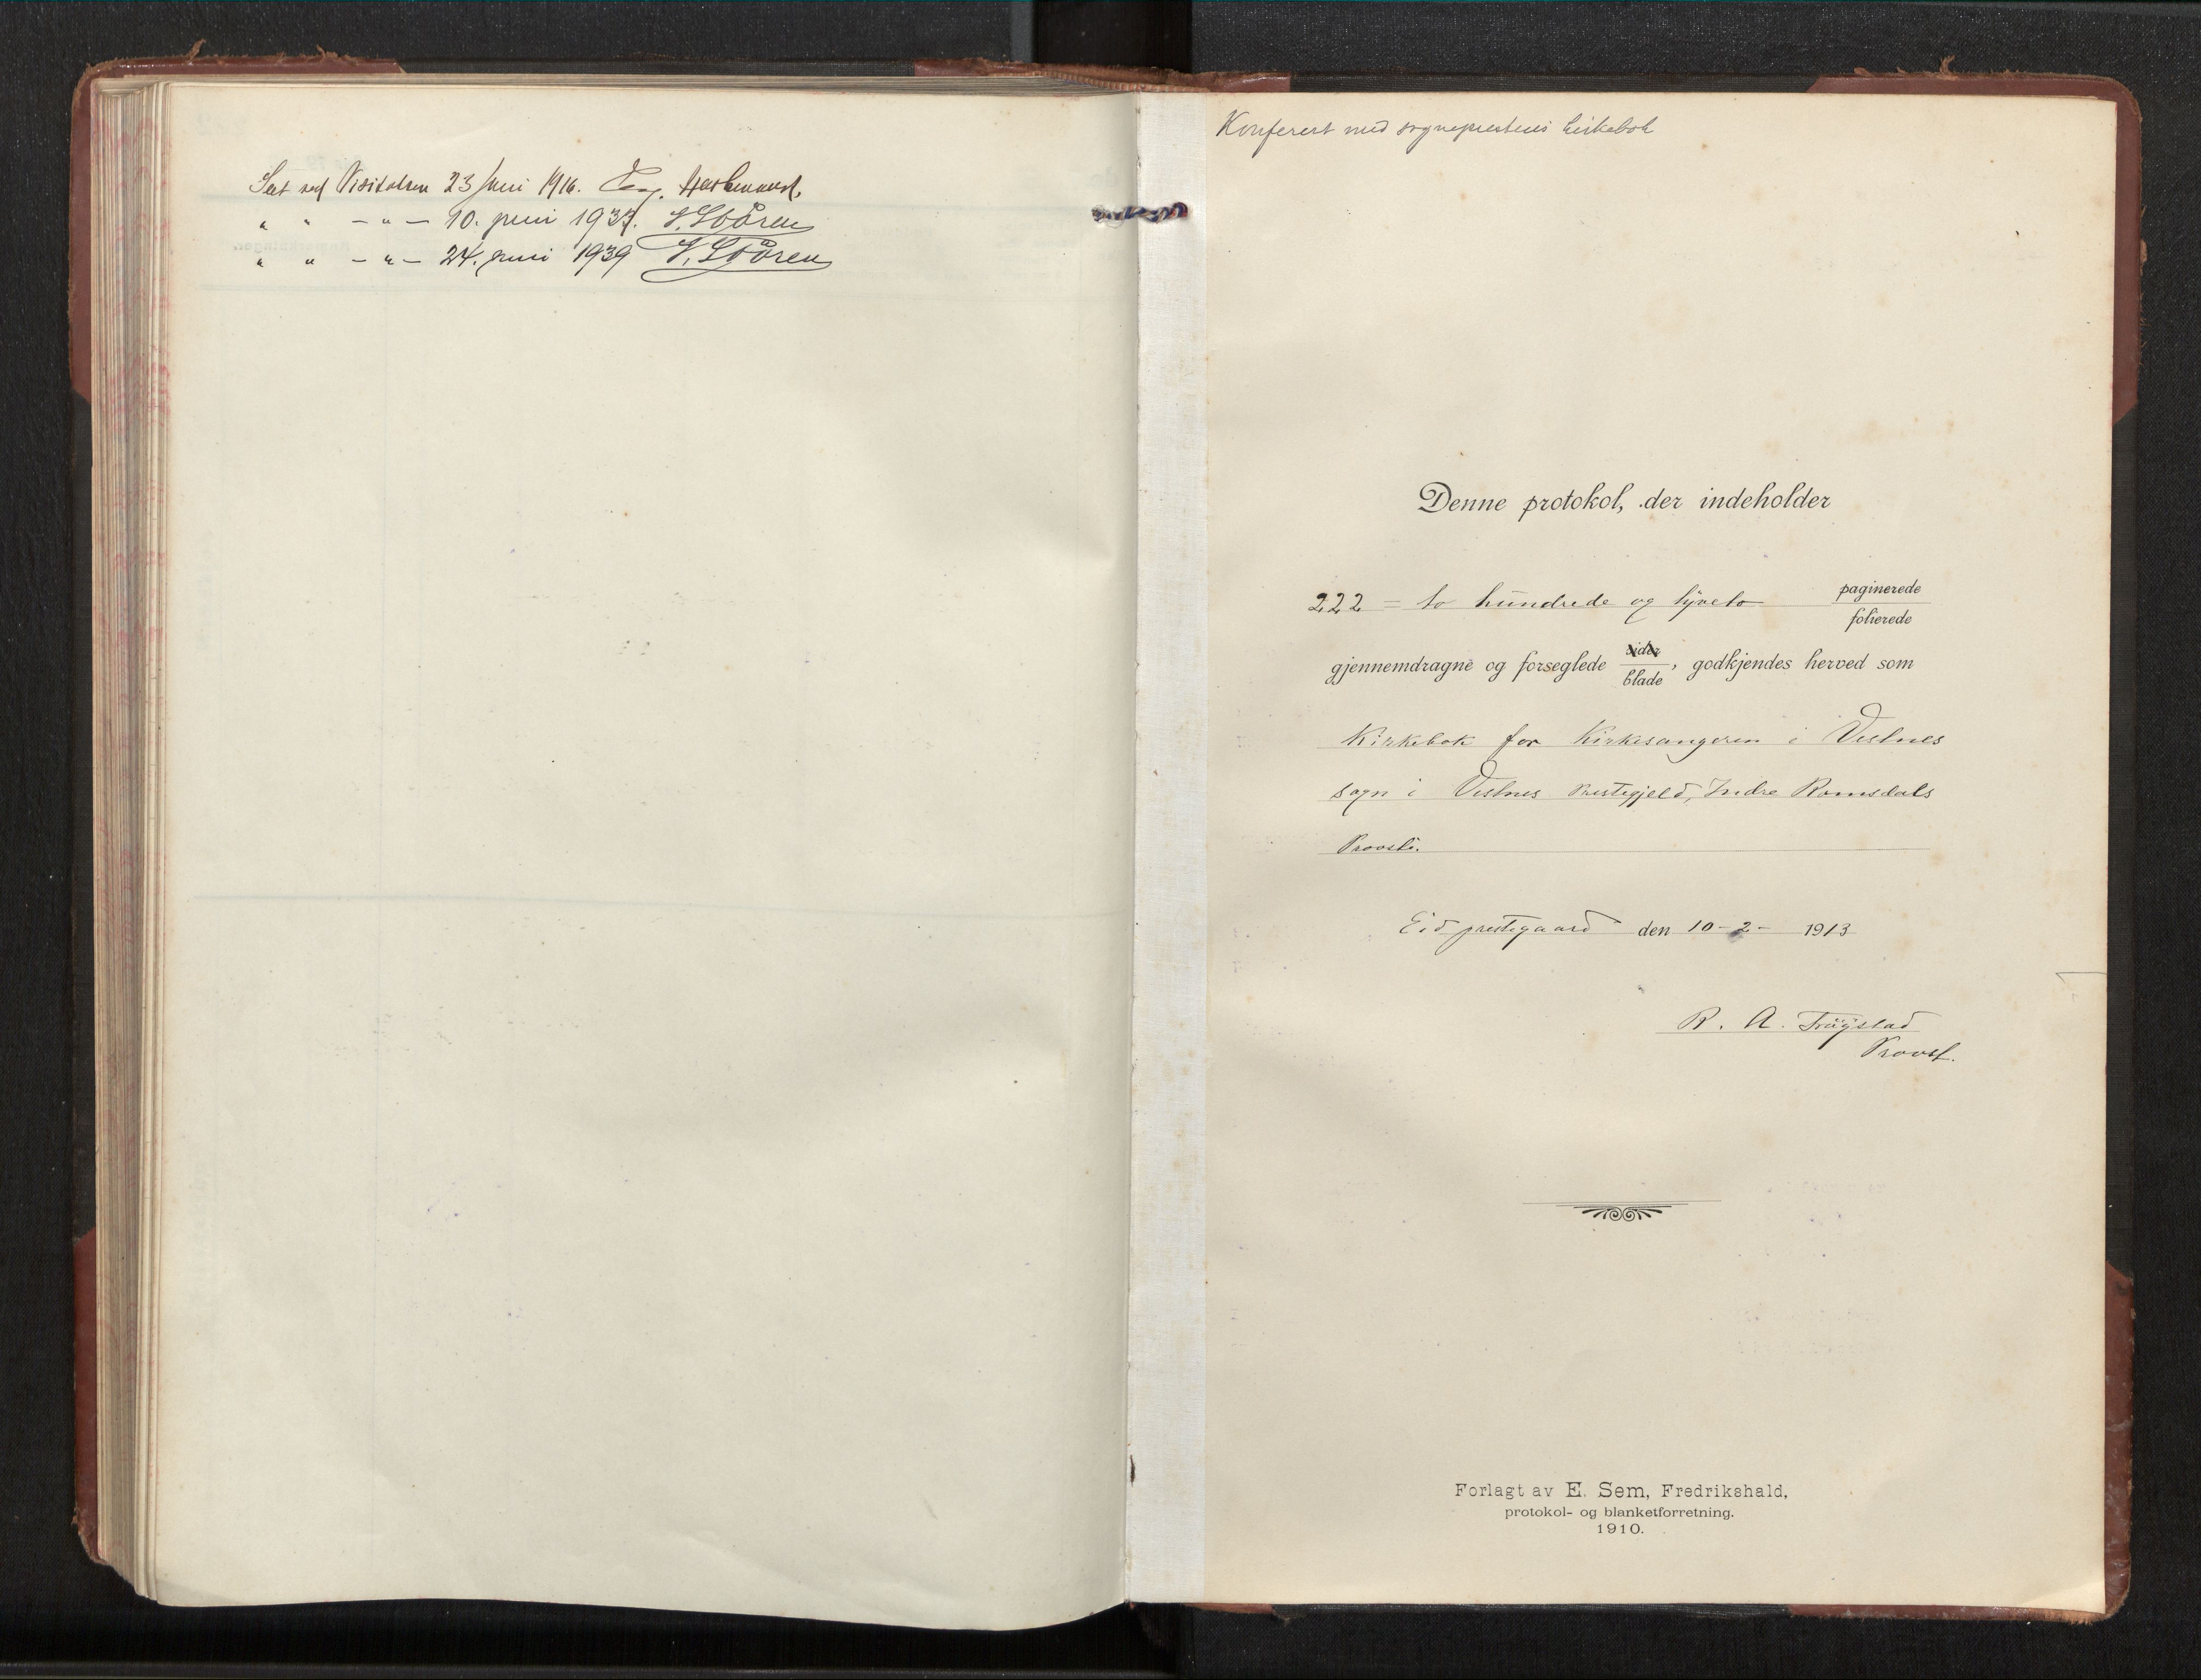 Set ved Visitatsen 23 Juni 1916.
" " - " - 10. juni 1933. V. Støren
" " - " - 24. juni 1939 V. Støren
Konferert med sogneprestens kirkebok
Denne protokol, der indeholder
222 = to hundrede og tyveto paginerede
folierede
gjennemdragne og forseglede sider
blade, godkjendes herved som
Kirkebok for Kirkesangeren i Vestnes
sogn i Vestnes Prestegjeld, Indre Romsdals
Provsti.
Eid prestegaard den 10-2-1913
R. A. Trøgstad
Provst.
Forlagt av E. Sem, Fredrikshald,
protokol- og blanketforretning.
1910.